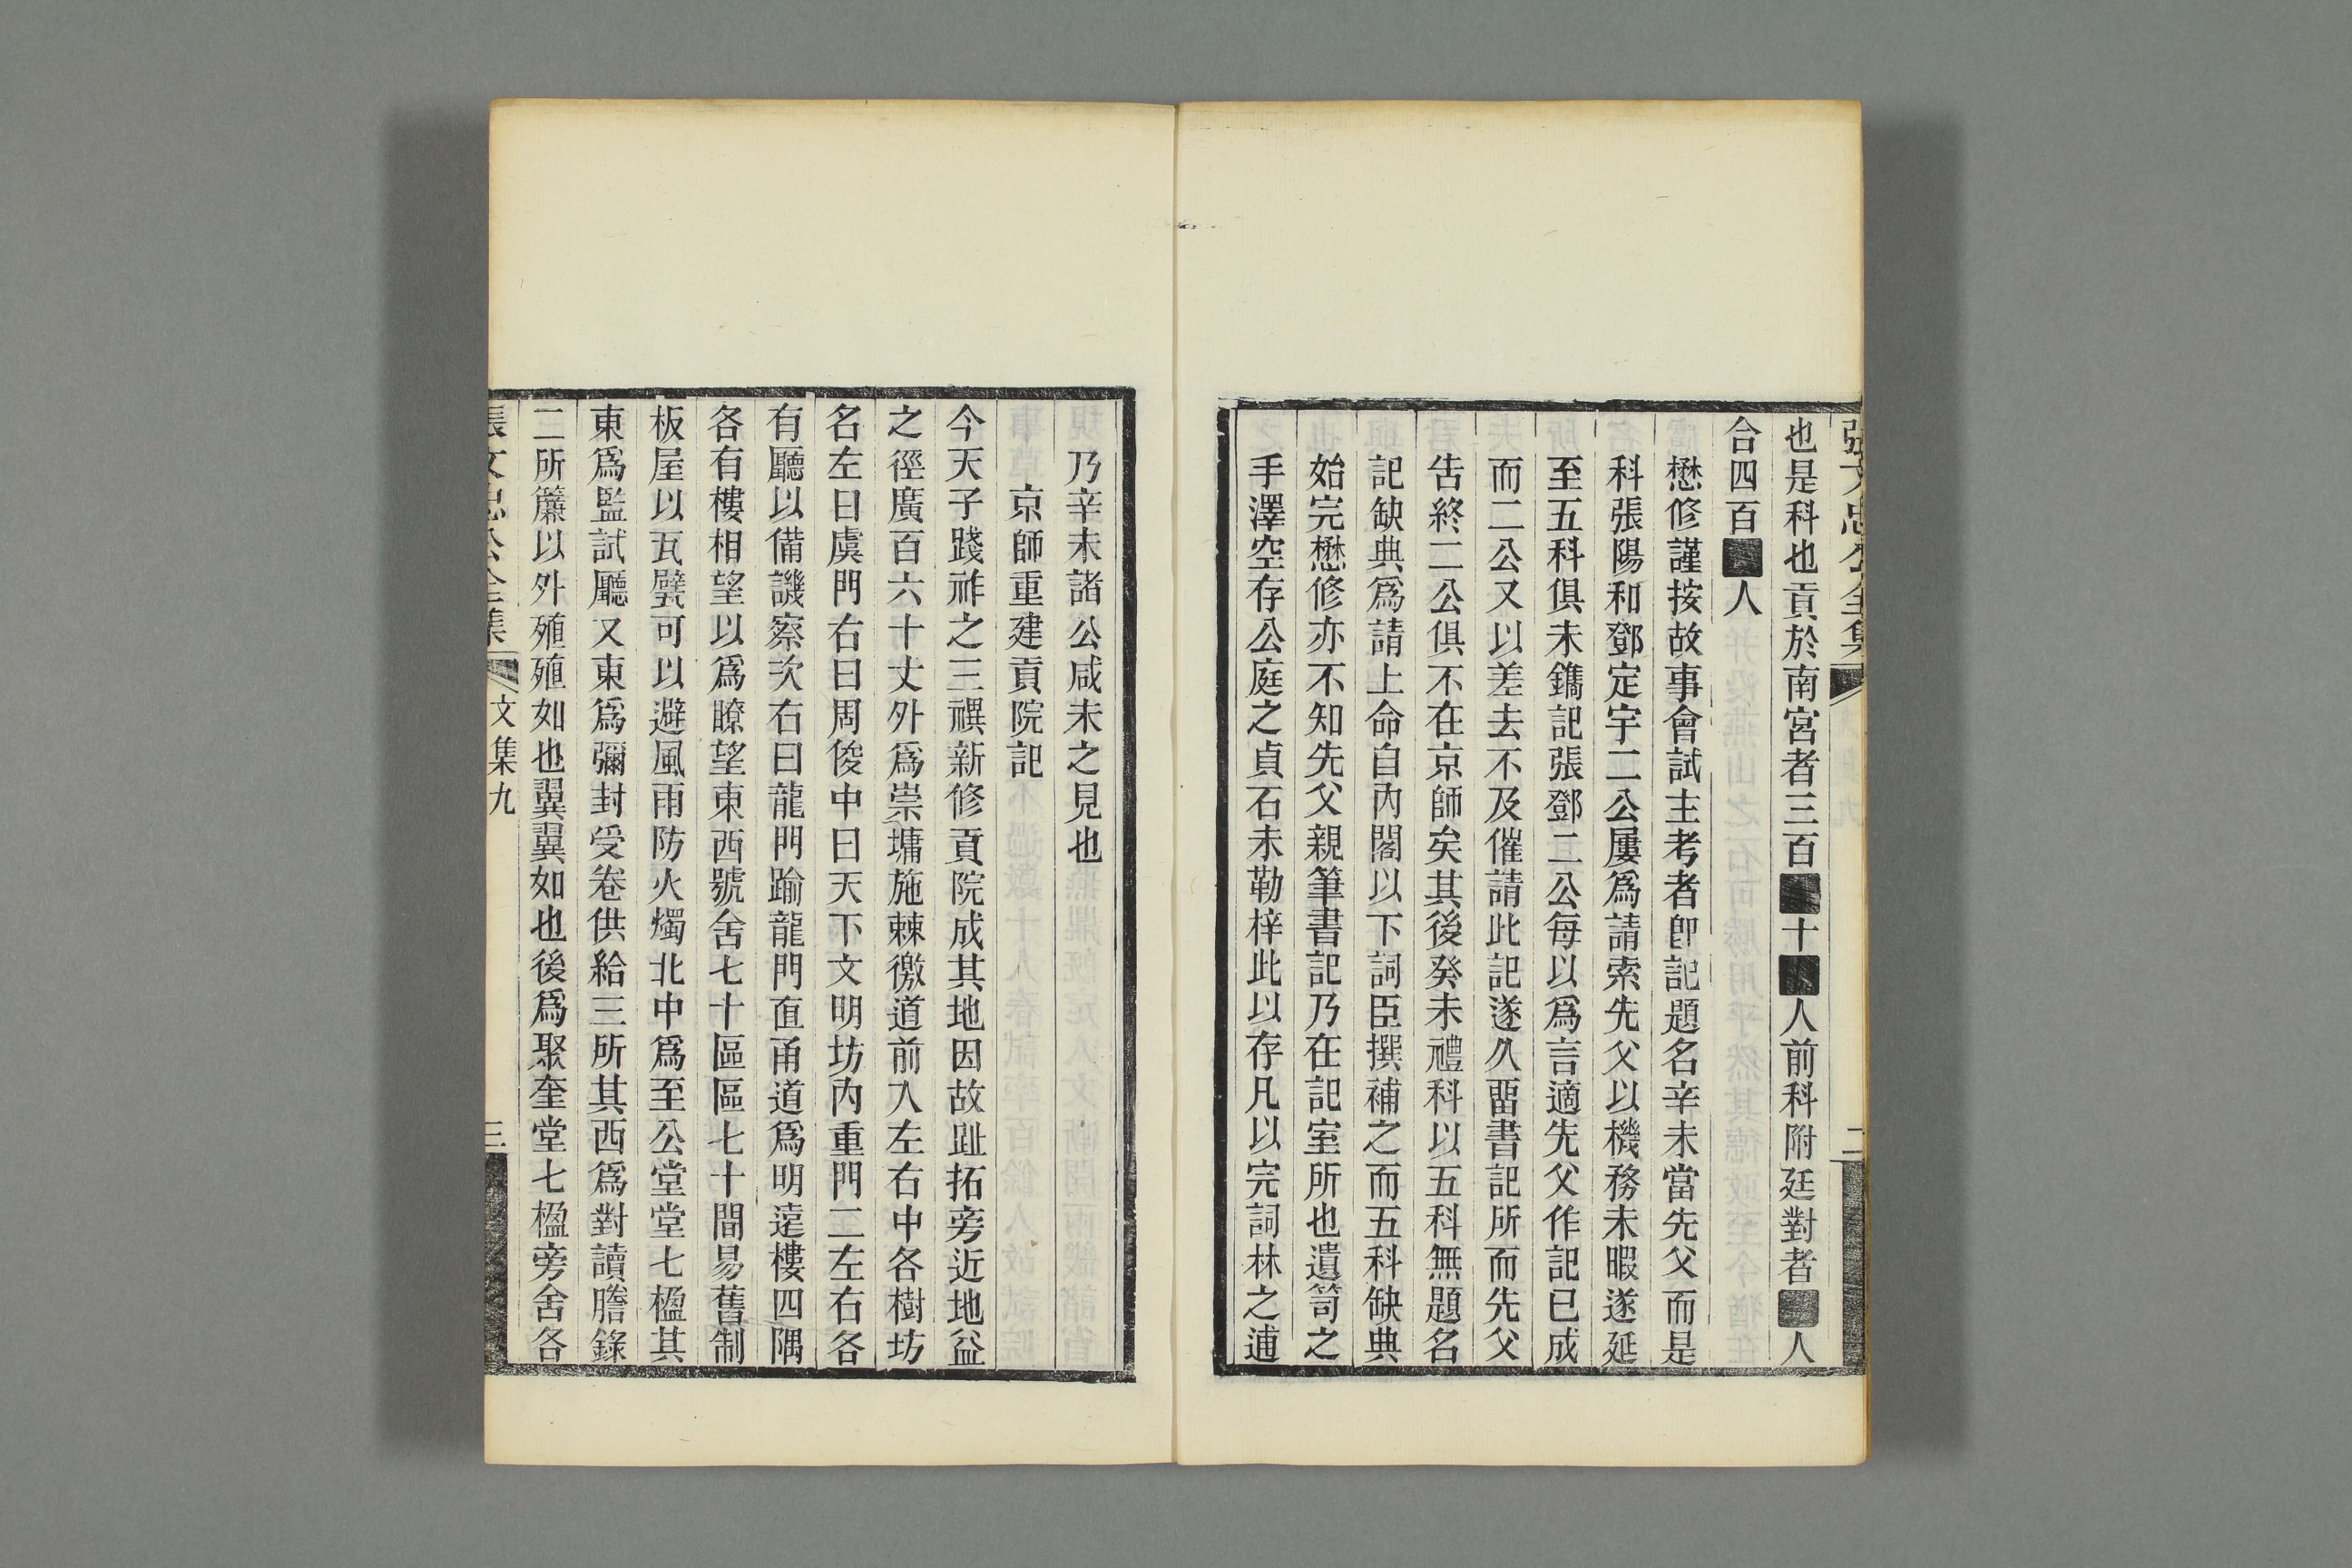 張文忠公全集
二
也是科也貢於南宮者三百■十■人前科附廷對者■人
合四百■人
懋修謹按故事會試主考者卽記題名辛未當先父而是
科張陽和鄧定宇二公屢爲請索先父以機務未暇遂延
至五科俱未鐫記張鄧二公每以爲言適先父作記已成
而二公又以差去不及催請此記遂久畱書記所而先父
吿終二公俱不在京師矣其後癸未禮科以五科無題名
記缺典爲請上命自內閣以下詞臣撰補之而五科缺典
始完懋修亦不知先父親筆書記乃在記室所也遺笥之
手澤空存公庭之貞石未勒梓此以存凡以完詞林之逋
乃辛未諸公咸未之見也
京師重建貢院記
今天子踐祚之三禩新修貢院成其地因故趾拓旁近地益
之徑廣百六十丈外爲崇墉施棘徼道前入左右中各樹坊
名左曰虞門右曰周俊中曰天下文明坊內重門二左右各
有廳以備譏察次右曰龍門踰龍門直甬道爲明遠樓四隅
各有樓相望以爲瞭望東西號舍七十區區七十間易舊制
板屋以瓦甓可以避風雨防火燭北中爲至公堂堂七楹其
東爲監試廳又東爲彌封受卷供給三所其西爲對讀謄錄
二所簾以外殖殖如也翼翼如也後爲聚奎堂七楹旁舍各
張文忠公全集
文集九
三